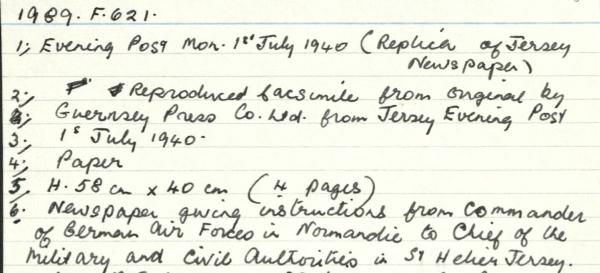 1989. F.621.
1; Evening Post Mon. 1st July 1940 (Replica of Jersey
Newspaper)
2; Reproduced facsimile from original by
Guernsey Press Co. Ltd. from Jersey Evening Post
3. 1st July 1940.
4; Paper
5, H. 58 cm x 40 cm (4 pages)
6. Newspaper giving instructions from Commander
of German Air Forces in Normandie to Chief of the
Military and Civil Authorities in St Helier Jersey.